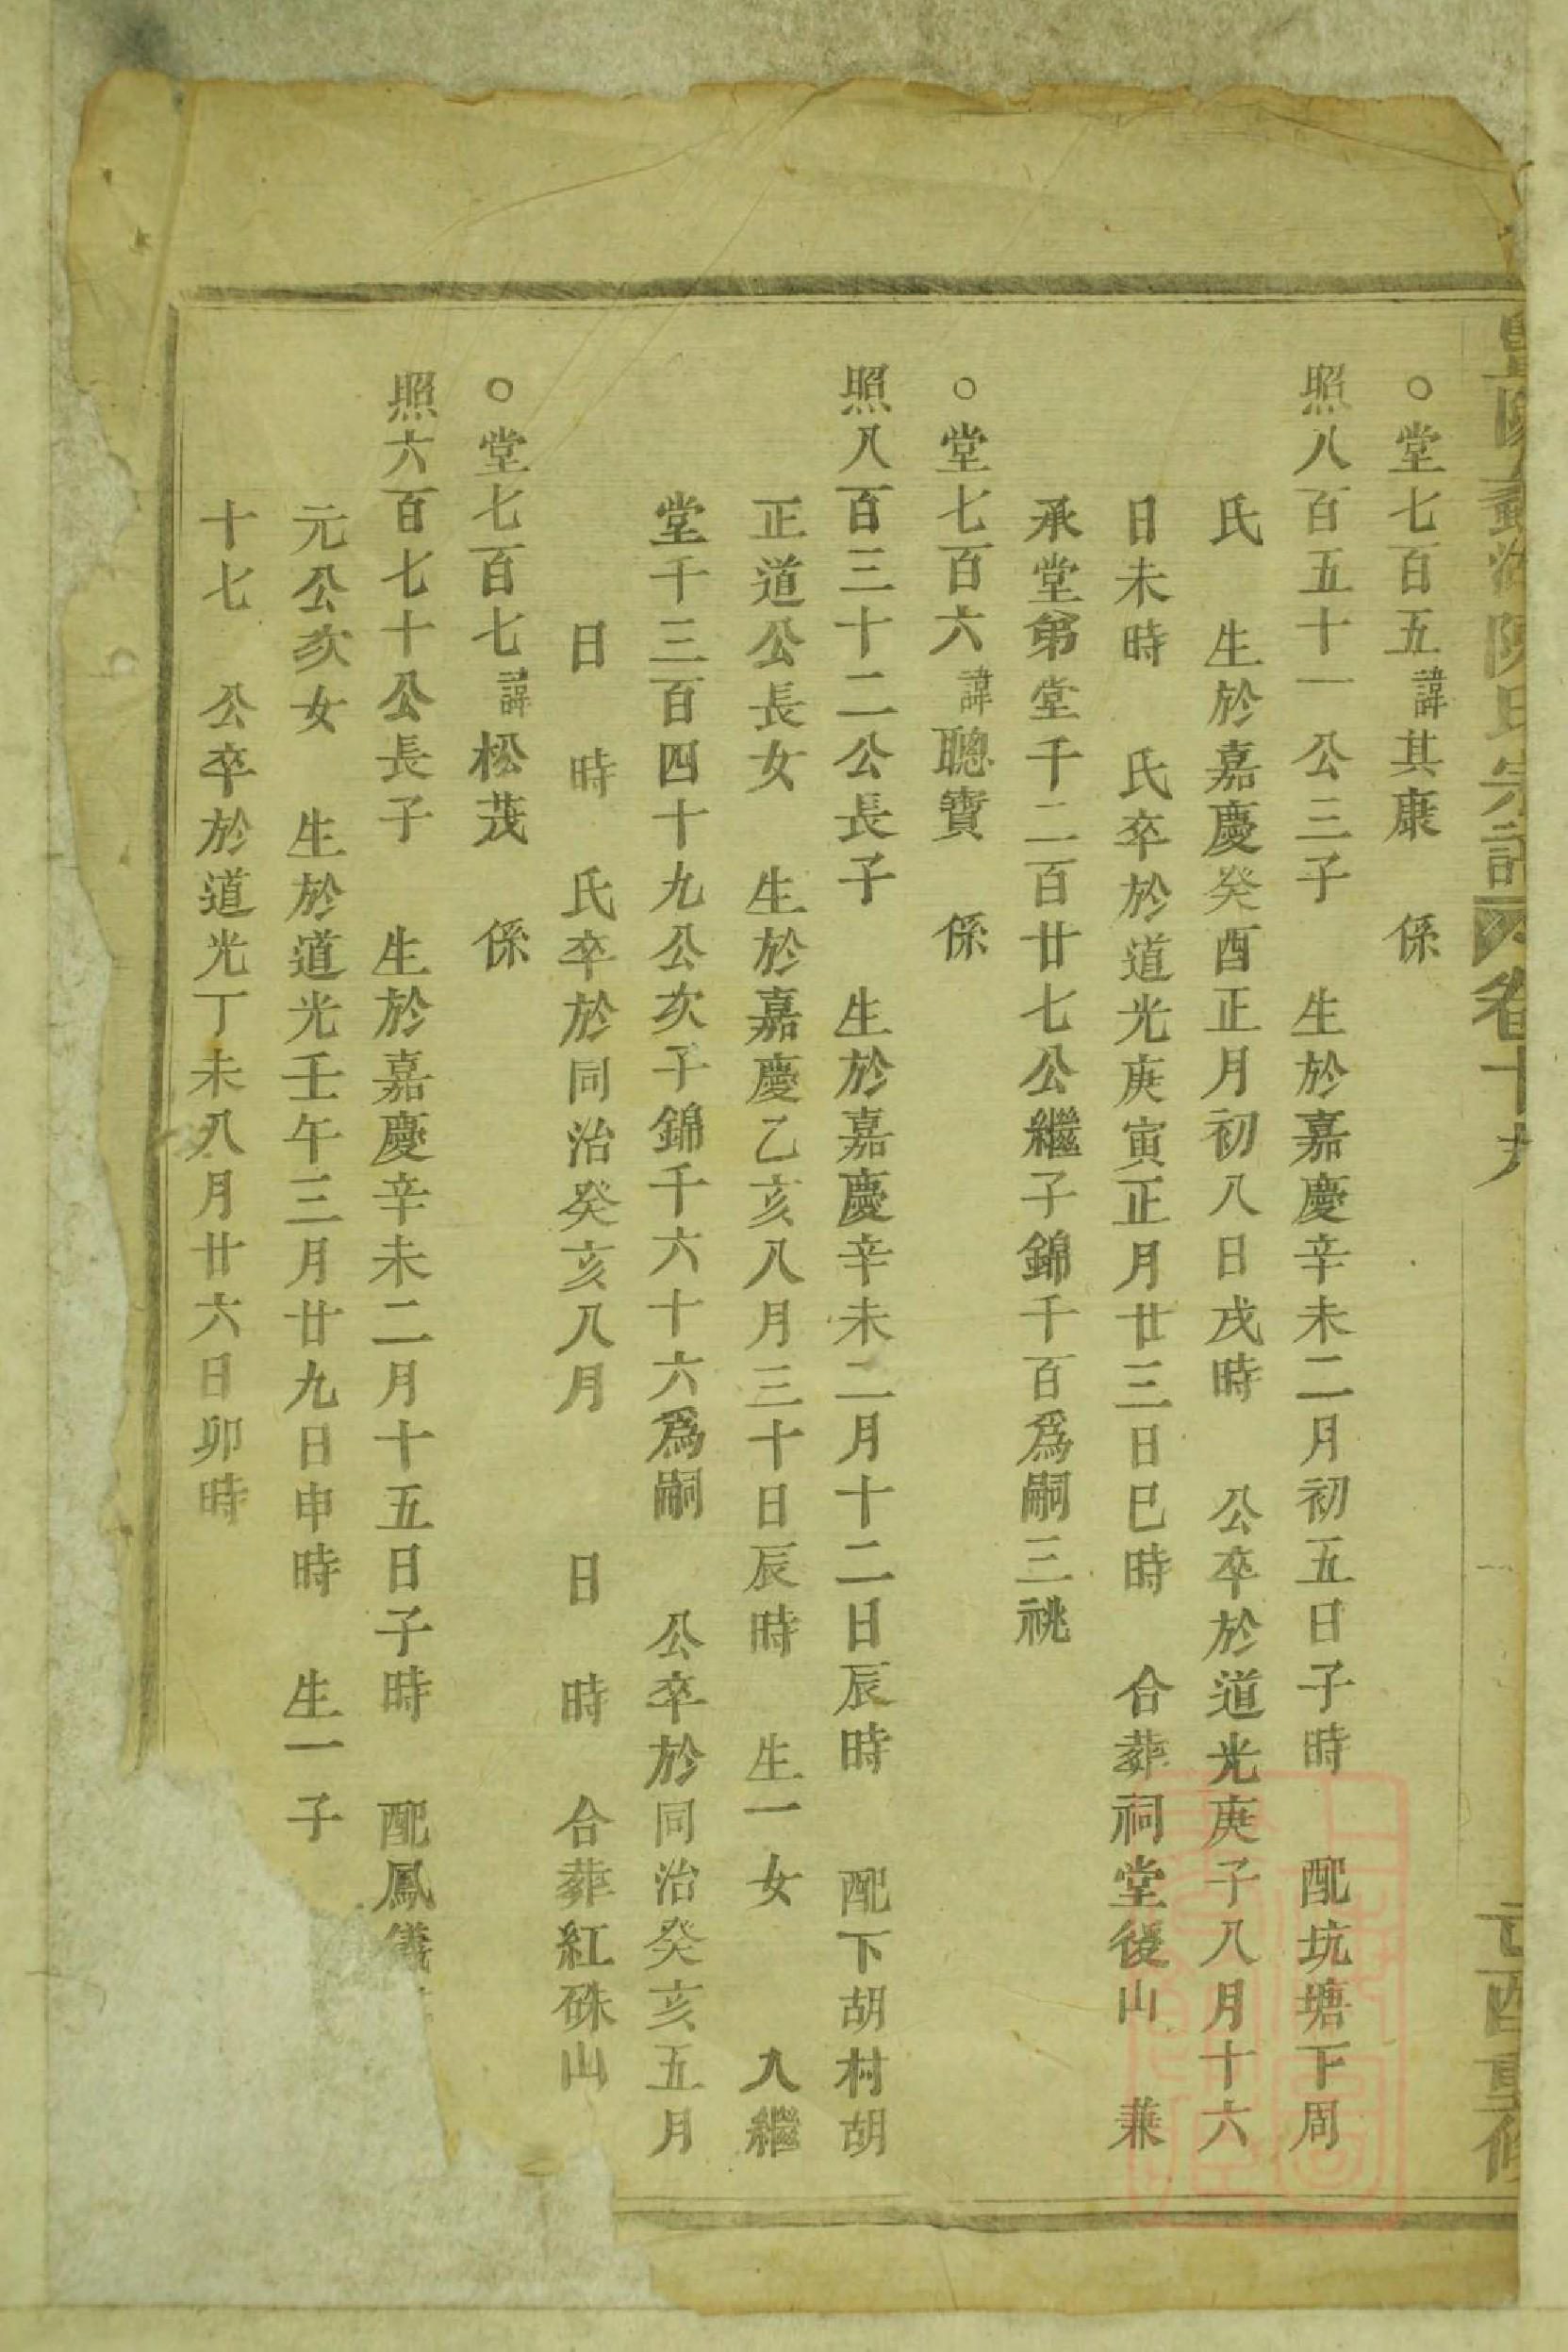 陳氏宗譜 卷十九 酉重修
○堂七百五諱其康 係
照八百五十一公三子 生於嘉慶辛未二月初五日子時 配坑塘下周
氏 生於嘉慶癸酉正月初八日戌時 公卒於道光庚子八月十六
日未時 氏卒於道光庚寅正月廿三日巳時 合葬祠堂後山 兼
承堂弟堂千二百廿七公繼子錦千百爲嗣三祧
○堂七百六諱聰寶 係
照八百三十二公長子 生於嘉慶辛未二月十二日辰時 配下胡村胡
正道公長女 生於嘉慶乙亥八月三十日辰時 生一女 入繼
堂千三百四十九公次子錦千六十六爲嗣 公卒於同治癸亥五月
日 時 氏卒於同治癸亥八月 日 時 合葬紅硃山
○堂七百七諱松茂 係
照六百七十公長子 生於嘉慶辛未二月十五日子時 配鳳儀
元公次女 生於道光壬午三月廿九日申時 生一子
十七 公卒於道光丁未八月廿六日卯時